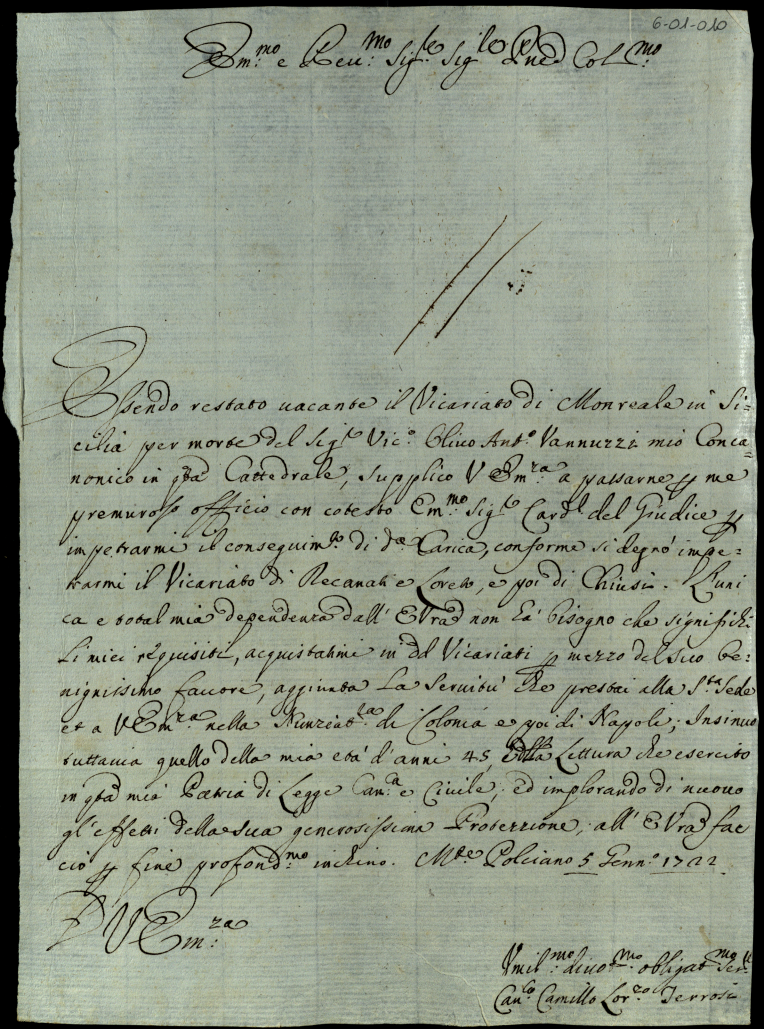 6-01-010
Em:mo e Reu:mo Sig:re Sig:re Pne Col:mo
Essendo restato uacante il Vicariato di Monreale in Si=
cilia per morte del Sig:re Vic:o Oliuo Ant:o Vannuzzi mio Conca=
nonico in qta Cattedrale, supplico V Em:za a passarne p me
premuroso officio con cotesto Em:mo Sig:re Card:l del Giudice p
impetrarmi il conseguim:to di d:a Carica, conforme si degnò impe=
trarmi il Vicariato di Recanati e Loreto, e poi di Chiusi. L'uni
ca e total mia dependenza dall' E Vra non hà bisogno che significhi
li miei requisiti, acquistatimi in dd Vicariati p mezzo del suo be=
nignissimo fauore, aggiunta la seruitù che prestai alla S:ta Sede
et a V Em:za nella Nunziat:ra di Colonia e poi di Napoli; Insinuo
tuttauia quello della mia età d'anni 45 della Lettura che esercito
in qta mia Patria di Legge Can:a e Ciuile; ed implorando di nuouo
gl'effetti della sua generosissima Protezzione, all' E Vra fac
cio p fine profond:mo inchino. M:te Polciano 5 Genn:o 1722
D' V Em:za
Vmil:mo diuot:mo obligat:mo Ser:re
Can:co Camillo Lor:zo Terrosi